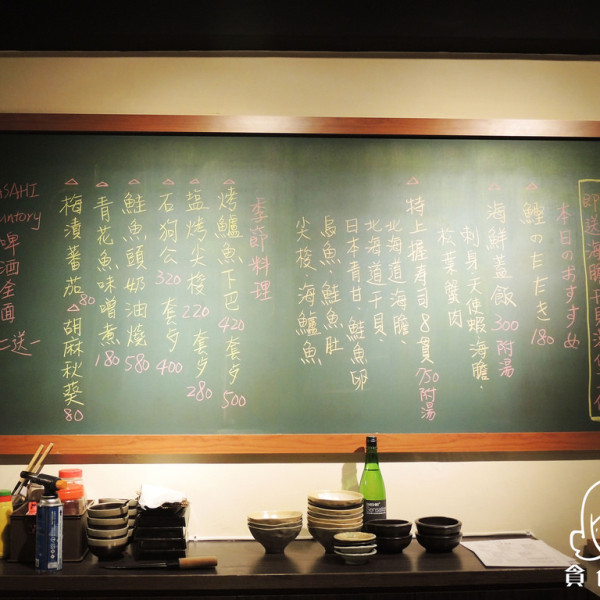 本日のおすすめ
△鰹のたたき 180
△海鮮蓋飯 300 附湯
刺身、天使蝦、海膽、
松葉蟹肉
△特上握寿司 8貫 750 附湯
北海道海膽、
北海道干貝、
日本青甘、鮭魚卵
烏魚、鮭魚肚
尖梭、海鱸魚
季節料理
△烤鱸魚下巴 420 套歺 500
△塩烤尖梭 220 套歺 280
△石狗公 320 套歺 400
△鮭魚頭奶油燒 580
△青花魚味噌煮 180
△梅漬蕃茄 80 △胡麻秋葵 80
ASAHI
untory
啤酒全面
二送一
貪